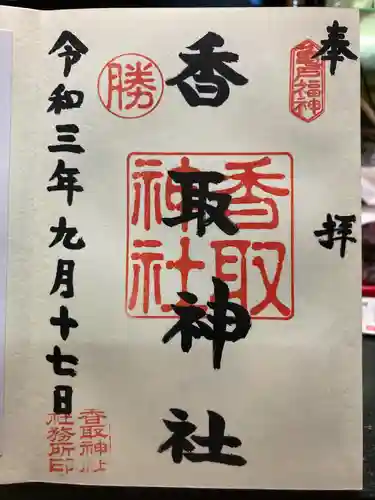 奉拝
亀戸福神
香取神社
香取
神社
勝
令和三年九月十七日
香取神社
社務所印